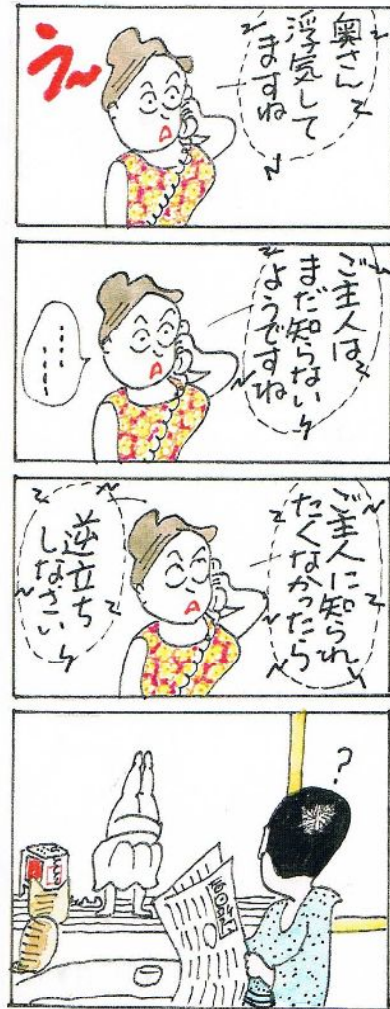 う〜
奥さん
浮気して
ますね
ご主人は
まだ知らない
ようですね
ご主人に知られ
たくなかったら
逆立ち
しなさい
?